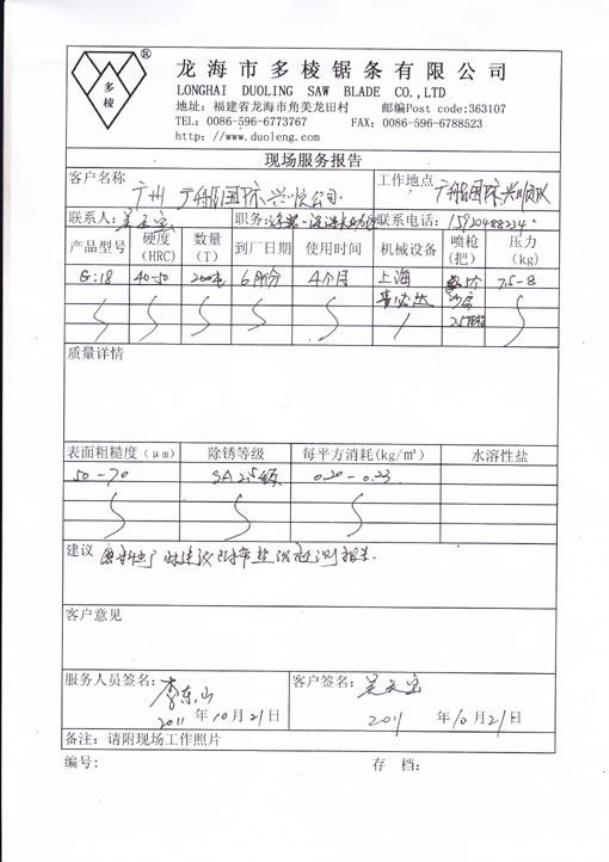 ®
多
棱
龙海市多棱锯条有限公司
LONGHAI DUOLING SAW BLADE CO.,LTD
地址：福建省龙海市角美龙田村 邮编Post code:363107
TEL: 0086-596-6773767 FAX: 0086-596-6788523
http://www.duoleng.com
现场服务报告
客户名称 广州 广船国际兴顺公司 工作地点 广船国际兴顺
联系人: 吴天宝 职务: 联系电话: 15920488234
产品型号 硬度(HRC) 数量(T) 到厂日期 使用时间 机械设备 喷枪(把) 压力(kg)
G:18 40-50 200吨 6月份 4个月 上海 7.5-8
质量详情
表面粗糙度（μm） 除锈等级 每平方消耗(kg/㎡) 水溶性盐
50-70 SA2.5级 0.20-0.23
建议 检测报告
客户意见
服务人员签名: 李东山 客户签名: 吴天宝
2011 年10月21日 2011 年10月21日
备注：请附现场工作照片
编号: 存 档: